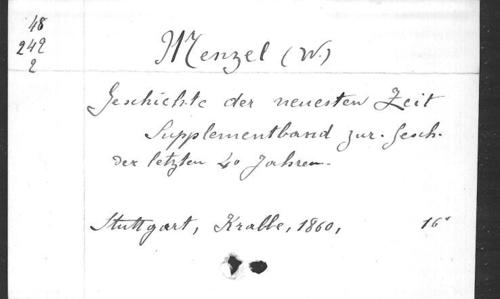 48
242
2
Menzel (W.)
Geschichte der neuesten Zeit
Supplementband zur Gesch.
der letzten 40 Jahren.
Stuttgart, Krabbe, 1860, 16°